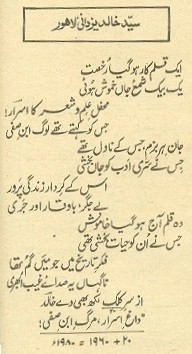 سیّد خالد یزدانی لاہور
ایک قلم کار ہو گیا رخصت
یک بیک شمع جاں خموش ہوئی
محفلِ علم و شعر کا اسرار!
جس کو کہتے تھے لوگ ابنِ صفی
جانِ ہر بزم جس کے ناول تھے
جس نے سرّی ادب کو جاں بخشی
اس کے کردار زندگی پرور
بے جگر! باوقار اور جری
وہ قلم آج ہو گیا خاموش
جس نے ان کو حیات بخشی تھی
فکرِ تاریخ میں جو میں گم تھا
ناگہاں یہ صدائے غیب آئی
از سرِ کلک لکھ بھی دے خالد
"داغِ اسرار، مرگِ ابنِ صفی!
۲۰ + ۱۹۶۰ = ۱۹۸۰ء